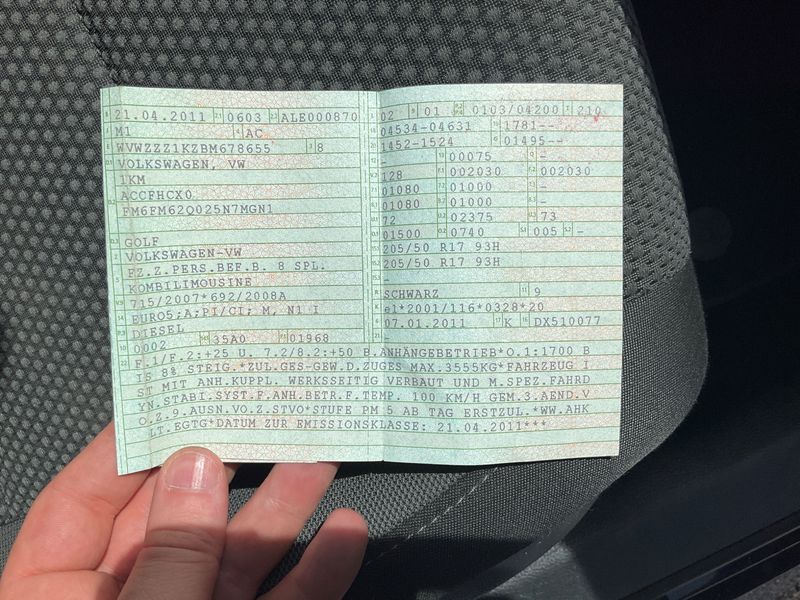 21.04.2011 0603 ALE000870
M1 AC
WVWZZZ1KZBM678655 8
VOLKSWAGEN, VW
1KM
ACCFHCX0
FM6FM62Q025N7MGN1
GOLF
VOLKSWAGEN-VW
FZ.Z.PERS.BEF.B. 8 SPL.
KOMBILIMOUSINE
715/2007*692/2008A
EURO5;A;PI/CI; M, N1 I
DIESEL
0002 35A0 01968
02 01 0103/04200 210
04534-04631 1781--
1452-1524 01495--
- 00075 -
128 002030 002030
01080 01000 -
01080 01000 -
72 02375 73
01500 0740 005 -
205/50 R17 93H
205/50 R17 93H
-
SCHWARZ 9
e1*2001/116*0328*20
07.01.2011 K DX510077
F.1/F.2:+25 U. 7.2/8.2:+50 B.ANHÄNGEBETRIEB*O.1:1700 B
IS 8% STEIG.*ZUL.GES-GEW.D.ZUGES MAX.3555KG*FAHRZEUG I
ST MIT ANH.KUPPL. WERKSSEITIG VERBAUT UND M.SPEZ.FAHRD
YN.STABI.SYST.F.ANH.BETR.F.TEMP. 100 KM/H GEM.3.AEND.V
O.Z.9.AUSN.VO.Z.STVO*STUFE PM 5 AB TAG ERSTZUL.*WW.AHK
LT.EGTG*DATUM ZUR EMISSIONSKLASSE: 21.04.2011***